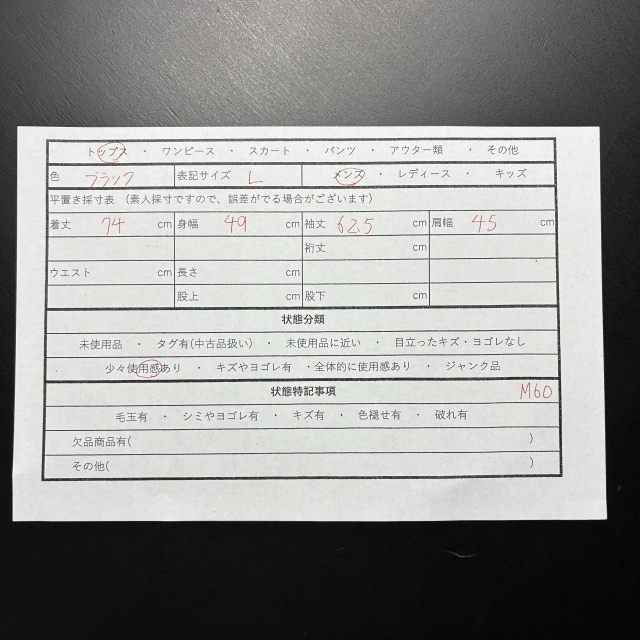 トップス ・ ワンピース ・ スカート ・ パンツ ・ アウター類 ・ その他
色 ブラック 表記サイズ L メンズ ・ レディース ・ キッズ
平置き採寸表 （素人採寸ですので、誤差がでる場合がございます）
着丈 74 cm 身幅 49 cm 袖丈 62.5 cm 肩幅 45 cm
裄丈 cm
ウエスト cm 長さ cm
股上 cm 股下 cm
状態分類
未使用品 ・ タグ有(中古品扱い) ・ 未使用品に近い ・ 目立ったキズ・ヨゴレなし
少々使用感あり ・ キズやヨゴレ有 ・全体的に使用感あり ・ ジャンク品
状態特記事項 M60
毛玉有 ・ シミやヨゴレ有 ・ キズ有 ・ 色褪せ有 ・ 破れ有
欠品商品有( )
その他( )